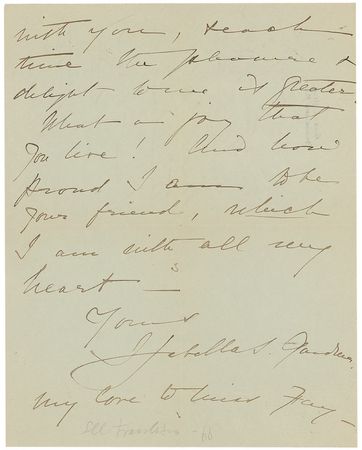 with you, & each
time the pleasure &
delight to me is greater.
What a joy that
you live! And how
proud I am to be
your friend, which
I am with all my
heart —
Yours
Isabella S. Gardner.
my love to Miss Fay —